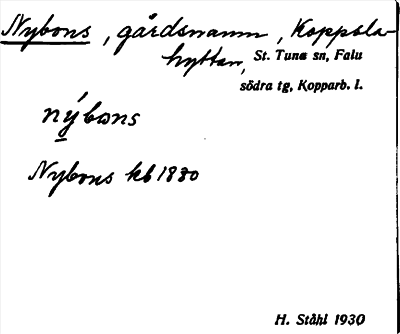 Nybons, gårdsnamn, Koppsla-
hyttan, St. Tuna sn, Falu
södra tg, Kopparb. l.
nýbons
Nybons kb 1880
H. Ståhl 1930